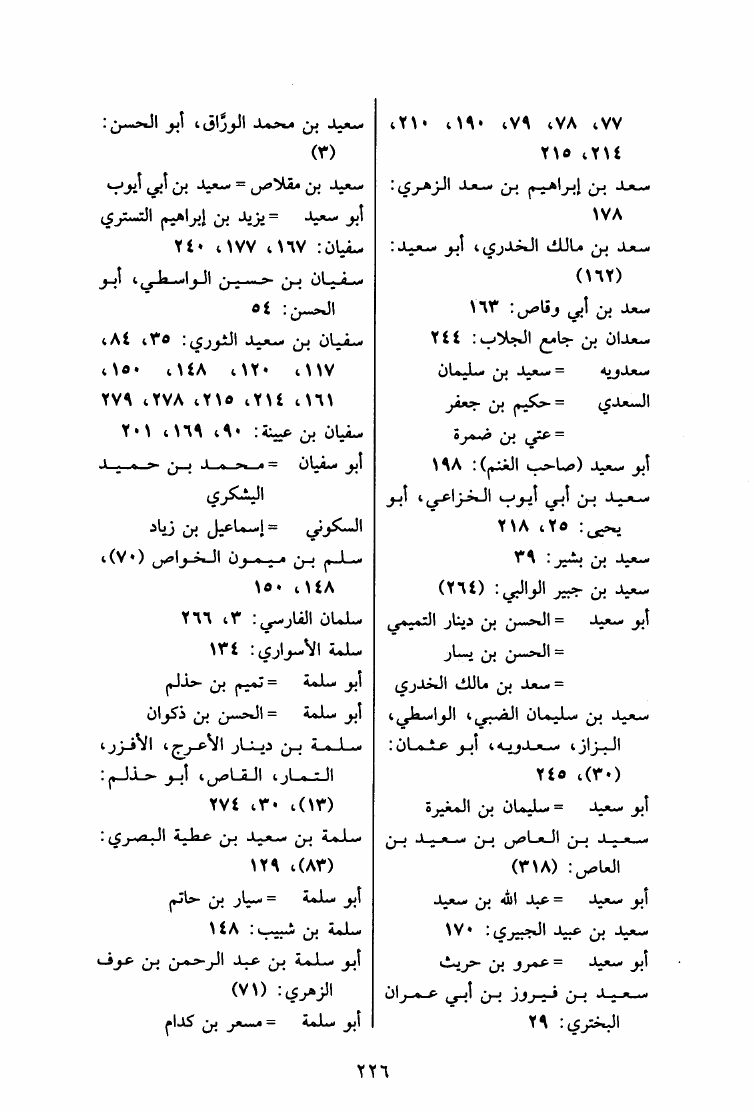 ٧٧، ٧٨، ٧٩، ١٩٠، ٢١٠،
٢١٤، ٢١٥
سعد بن إبراهيم بن سعد الزهري:
١٧٨
سعد بن مالك الخدري، أبو سعيد:
(١٦٢)
سعد بن أبي وقاص: ١٦٣
سعدان بن جامع الجلاب: ٢٤٤
سعدويه = سعيد بن سليمان
السعدي = حكيم بن جعفر
= عتي بن ضمرة
أبو سعيد (صاحب الغنم): ١٩٨
سعيد بن أبي أيوب الخزاعي، أبو
يحيى: ٢٥، ٢١٨
سعيد بن بشير: ٣٩
سعيد بن جبير الوالبي: (٢٦٤)
أبو سعيد = الحسن بن دينار التميمي
= الحسن بن يسار
= سعد بن مالك الخدري
سعيد بن سليمان الضبي، الواسطي،
البزاز، سعدويه، أبو عثمان:
(٣٠)، ٢٤٥
أبو سعيد = سليمان بن المغيرة
سعيد بن العاص بن سعيد بن
العاص: (٣١٨)
أبو سعيد = عبد الله بن سعيد
سعيد بن عبيد الجبيري: ١٧٠
أبو سعيد = عمرو بن حريث
سعيد بن فيروز بن أبي عمران
البختري: ٢٩
سعيد بن محمد الورَّاق، أبو الحسن:
(٣)
سعيد بن مقلاص = سعيد بن أبي أيوب
أبو سعيد = يزيد بن إبراهيم التستري
سفيان: ١٦٧، ١٧٧، ٢٤٠
سفيان بن حسين الواسطي، أبو
الحسن: ٥٤
سفيان بن سعيد الثوري: ٣٥، ٨٤،
١١٧، ١٢٠، ١٤٨، ١٥٠،
١٦١، ٢١٤، ٢١٥، ٢٧٨، ٢٧٩
سفيان بن عيينة: ٩٠، ١٦٩، ٢٠١
أبو سفيان = محمد بن حميد
اليشكري
السكوني = إسماعيل بن زياد
سلم بن ميمون الخواص (٧٠)،
١٤٨، ١٥٠
سلمان الفارسي: ٣، ٢٦٦
سلمة الأسواري: ١٣٤
أبو سلمة = تميم بن حذلم
أبو سلمة = الحسن بن ذكوان
سلمة بن دينار الأعرج، الأفزر،
التمار، القاص، أبو حذلم:
(١٣)، ٣٠، ٢٧٤
سلمة بن سعيد بن عطية البصري:
(٨٣)، ١٢٩
أبو سلمة = سيار بن حاتم
سلمة بن شبيب: ١٤٨
أبو سلمة بن عبد الرحمن بن عوف
الزهري: (٧١)
أبو سلمة = مسعر بن كدام
٢٢٦